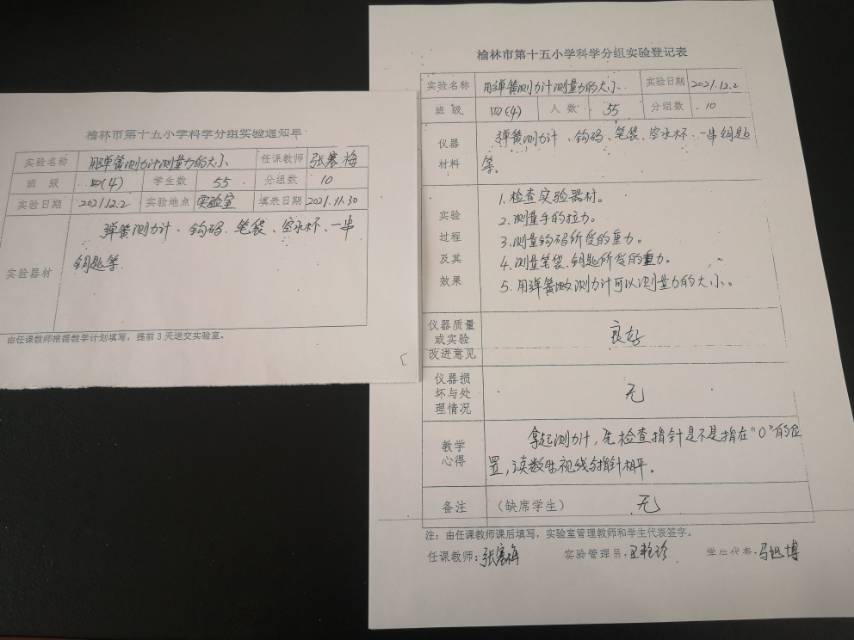 榆林市第十五小学科学分组实验通知单
实验名称 用弹簧测力计测量力的大小 任课教师 张塞梅
班 级 四(4) 学生数 55 分组数 10
实验日期 2021.12.2 实验地点 实验室 填表日期 2021.11.30
实验器材 弹簧测力计、钩码、笔袋、空水杯、一串
钥匙等
由任课教师根据教学计划填写，提前3天送交实验室。
榆林市第十五小学科学分组实验登记表
实验名称 用弹簧测力计测量力的大小 实验日期 2021.12.2
班 级 四(4) 人 数 55 分组数 10
仪器
材料
弹簧测力计、钩码、笔袋、空水杯、一串钥匙
等。
实验
过程
及其
效果
1.检查实验器材。
2.测量手的拉力。
3.测量钩码所受的重力。
4.测量笔袋、钥匙所受的重力。
5.用弹簧测力计可以测量力的大小。
仪器质量
或实验
改进意见
良好
仪器损
坏与处
理情况
无
教学
心得
拿起测力计，先检查指针是不是指在“0”的位
置，读数时视线与指针相平。
备注 （缺席学生） 无
注：由任课教师课后填写，实验室管理教师和学生代表签字。
任课教师：张塞梅 实验管理员：王 珍 学生代表：马旭博